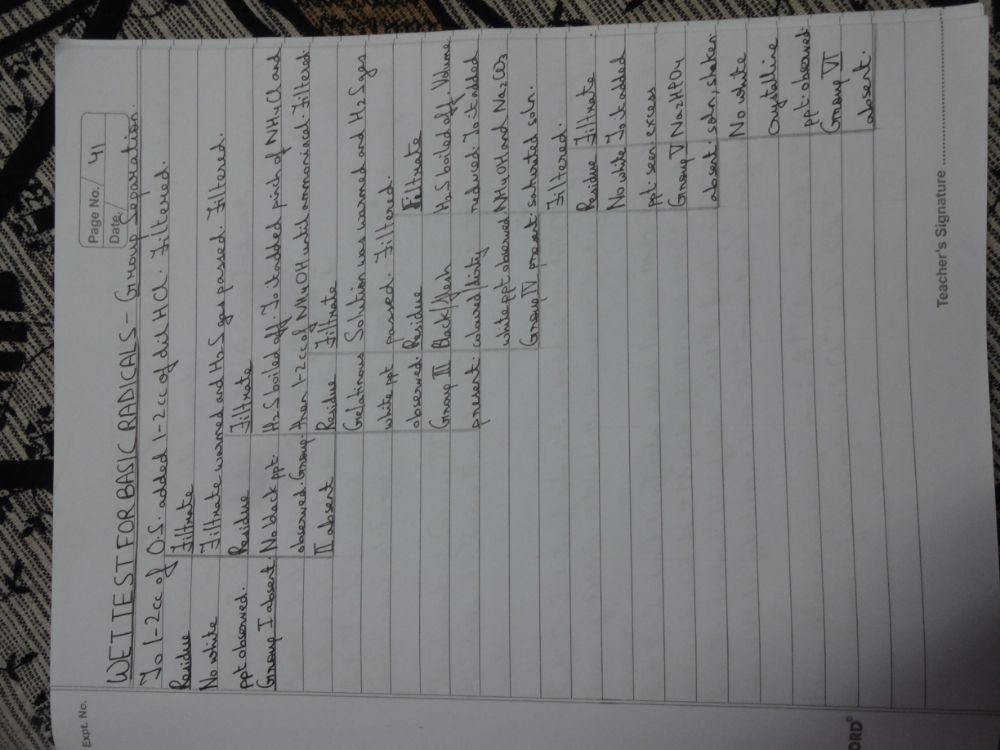 Expt. No.
Page No. 41
Date
WET TEST FOR BASIC RADICALS - Group Separation.
To 1-2 cc of O.S. added 1-2 cc of dil HCl. Filtered.
Residue Filtrate
No white Filtrate warmed and H2S gas passed. Filtered.
ppt observed. Residue Filtrate
Group I absent. No black ppt. H2S boiled off. To it added pinch of NH4Cl and
observed. Group then 1-2 cc of NH4OH until ammonical. Filtered.
II absent Residue Filtrate
Gelatinous Solution was warmed and H2S gas
white ppt passed. Filtered.
observed. Residue Filtrate
Group III Black/flesh H2S boiled off. Volume
present. coloured/dirty reduced. To it added
white ppt observed NH4OH and Na2CO3
Group IV present. saturated soln.
Filtered.
Residue Filtrate
No white To it added
ppt seen. excess
Group V Na2HPO4
absent. soln, shaken.
No white
crystalline
ppt observed
Group VI
absent.
Teacher's Signature
ORD